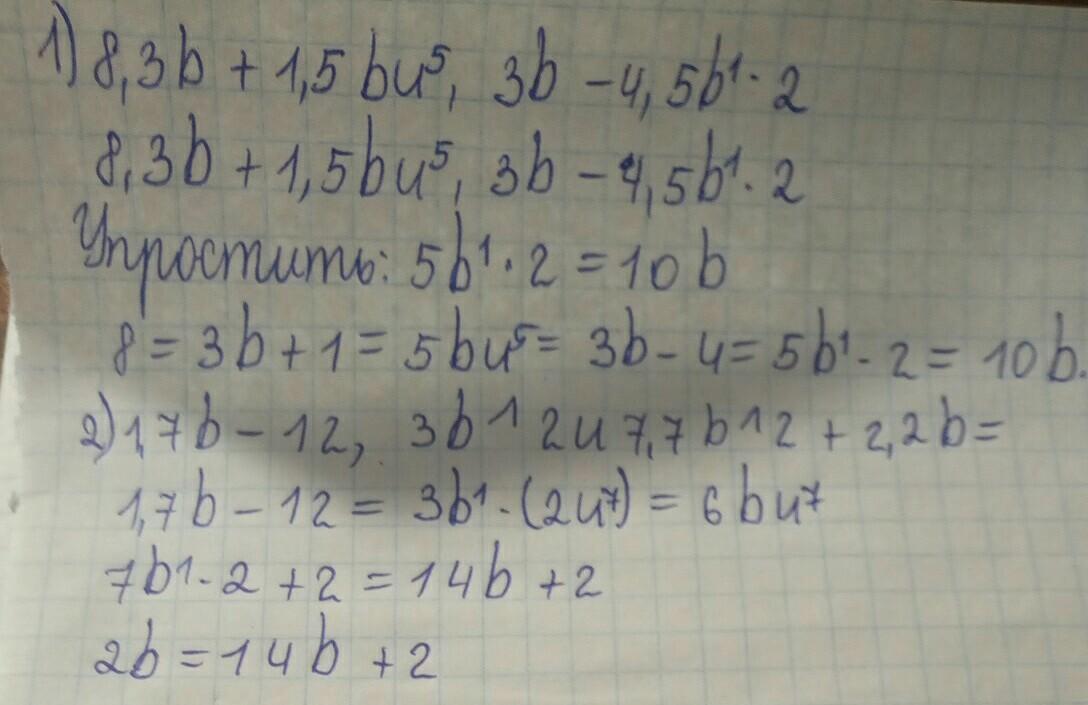 1) 8,3b + 1,5 bu⁵, 3b - 4,5b¹ · 2
8,3b + 1,5bu⁵, 3b - 4,5b¹ · 2
Упростить: 5b¹ · 2 = 10b
8 = 3b + 1 = 5bu⁵ = 3b - 4 = 5b¹ - 2 = 10b.
2) 1,7b - 12, 3b^1 2u 7,7b^12 + 2,2b =
1,7b - 12 = 3b¹ · (2u⁷) = 6bu⁷
7b¹ · 2 + 2 = 14b + 2
2b = 14b + 2